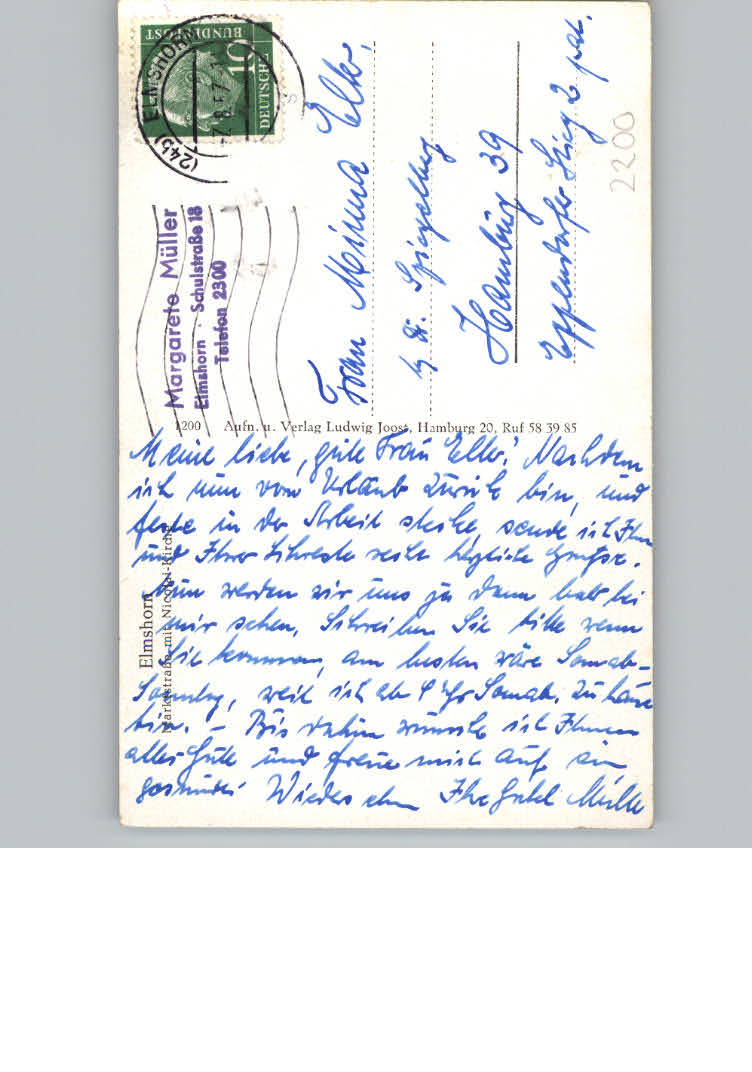 DEUTSCHE
BUNDESPOST
10
(24b) ELMSHORN
-7.8.57
Margarete Müller
Elmshorn · Schulstraße 18
Telefon 2300
Frau Minna Eller,
Spiegelberg
Hamburg 39
Eppendorfer Stieg 2 ptr.
2200
1200 Aufn. u. Verlag Ludwig Joost, Hamburg 20, Ruf 58 39 85
Elmshorn
Marktstraße mit Nicolai-Kirche
Meine liebe, gute Frau Eller! Nachdem
ich nun vom Urlaub zurück bin, und
feste in der Arbeit stecke, sende ich Ihnen
und Ihrer Schwester recht herzliche Grüsse.
Nun werden wir uns ja dann bald bei
mir sehen. Schreiben Sie bitte wenn
Sie kommen, am besten wäre Sonnab-
Sonntag, weil ich ab Uhr Sonnab. zu hause
bin. – Bis dahin wünsche ich Ihnen
alles Gute und freue mich auf ein
gesundes Wiedersehen Ihre Müller